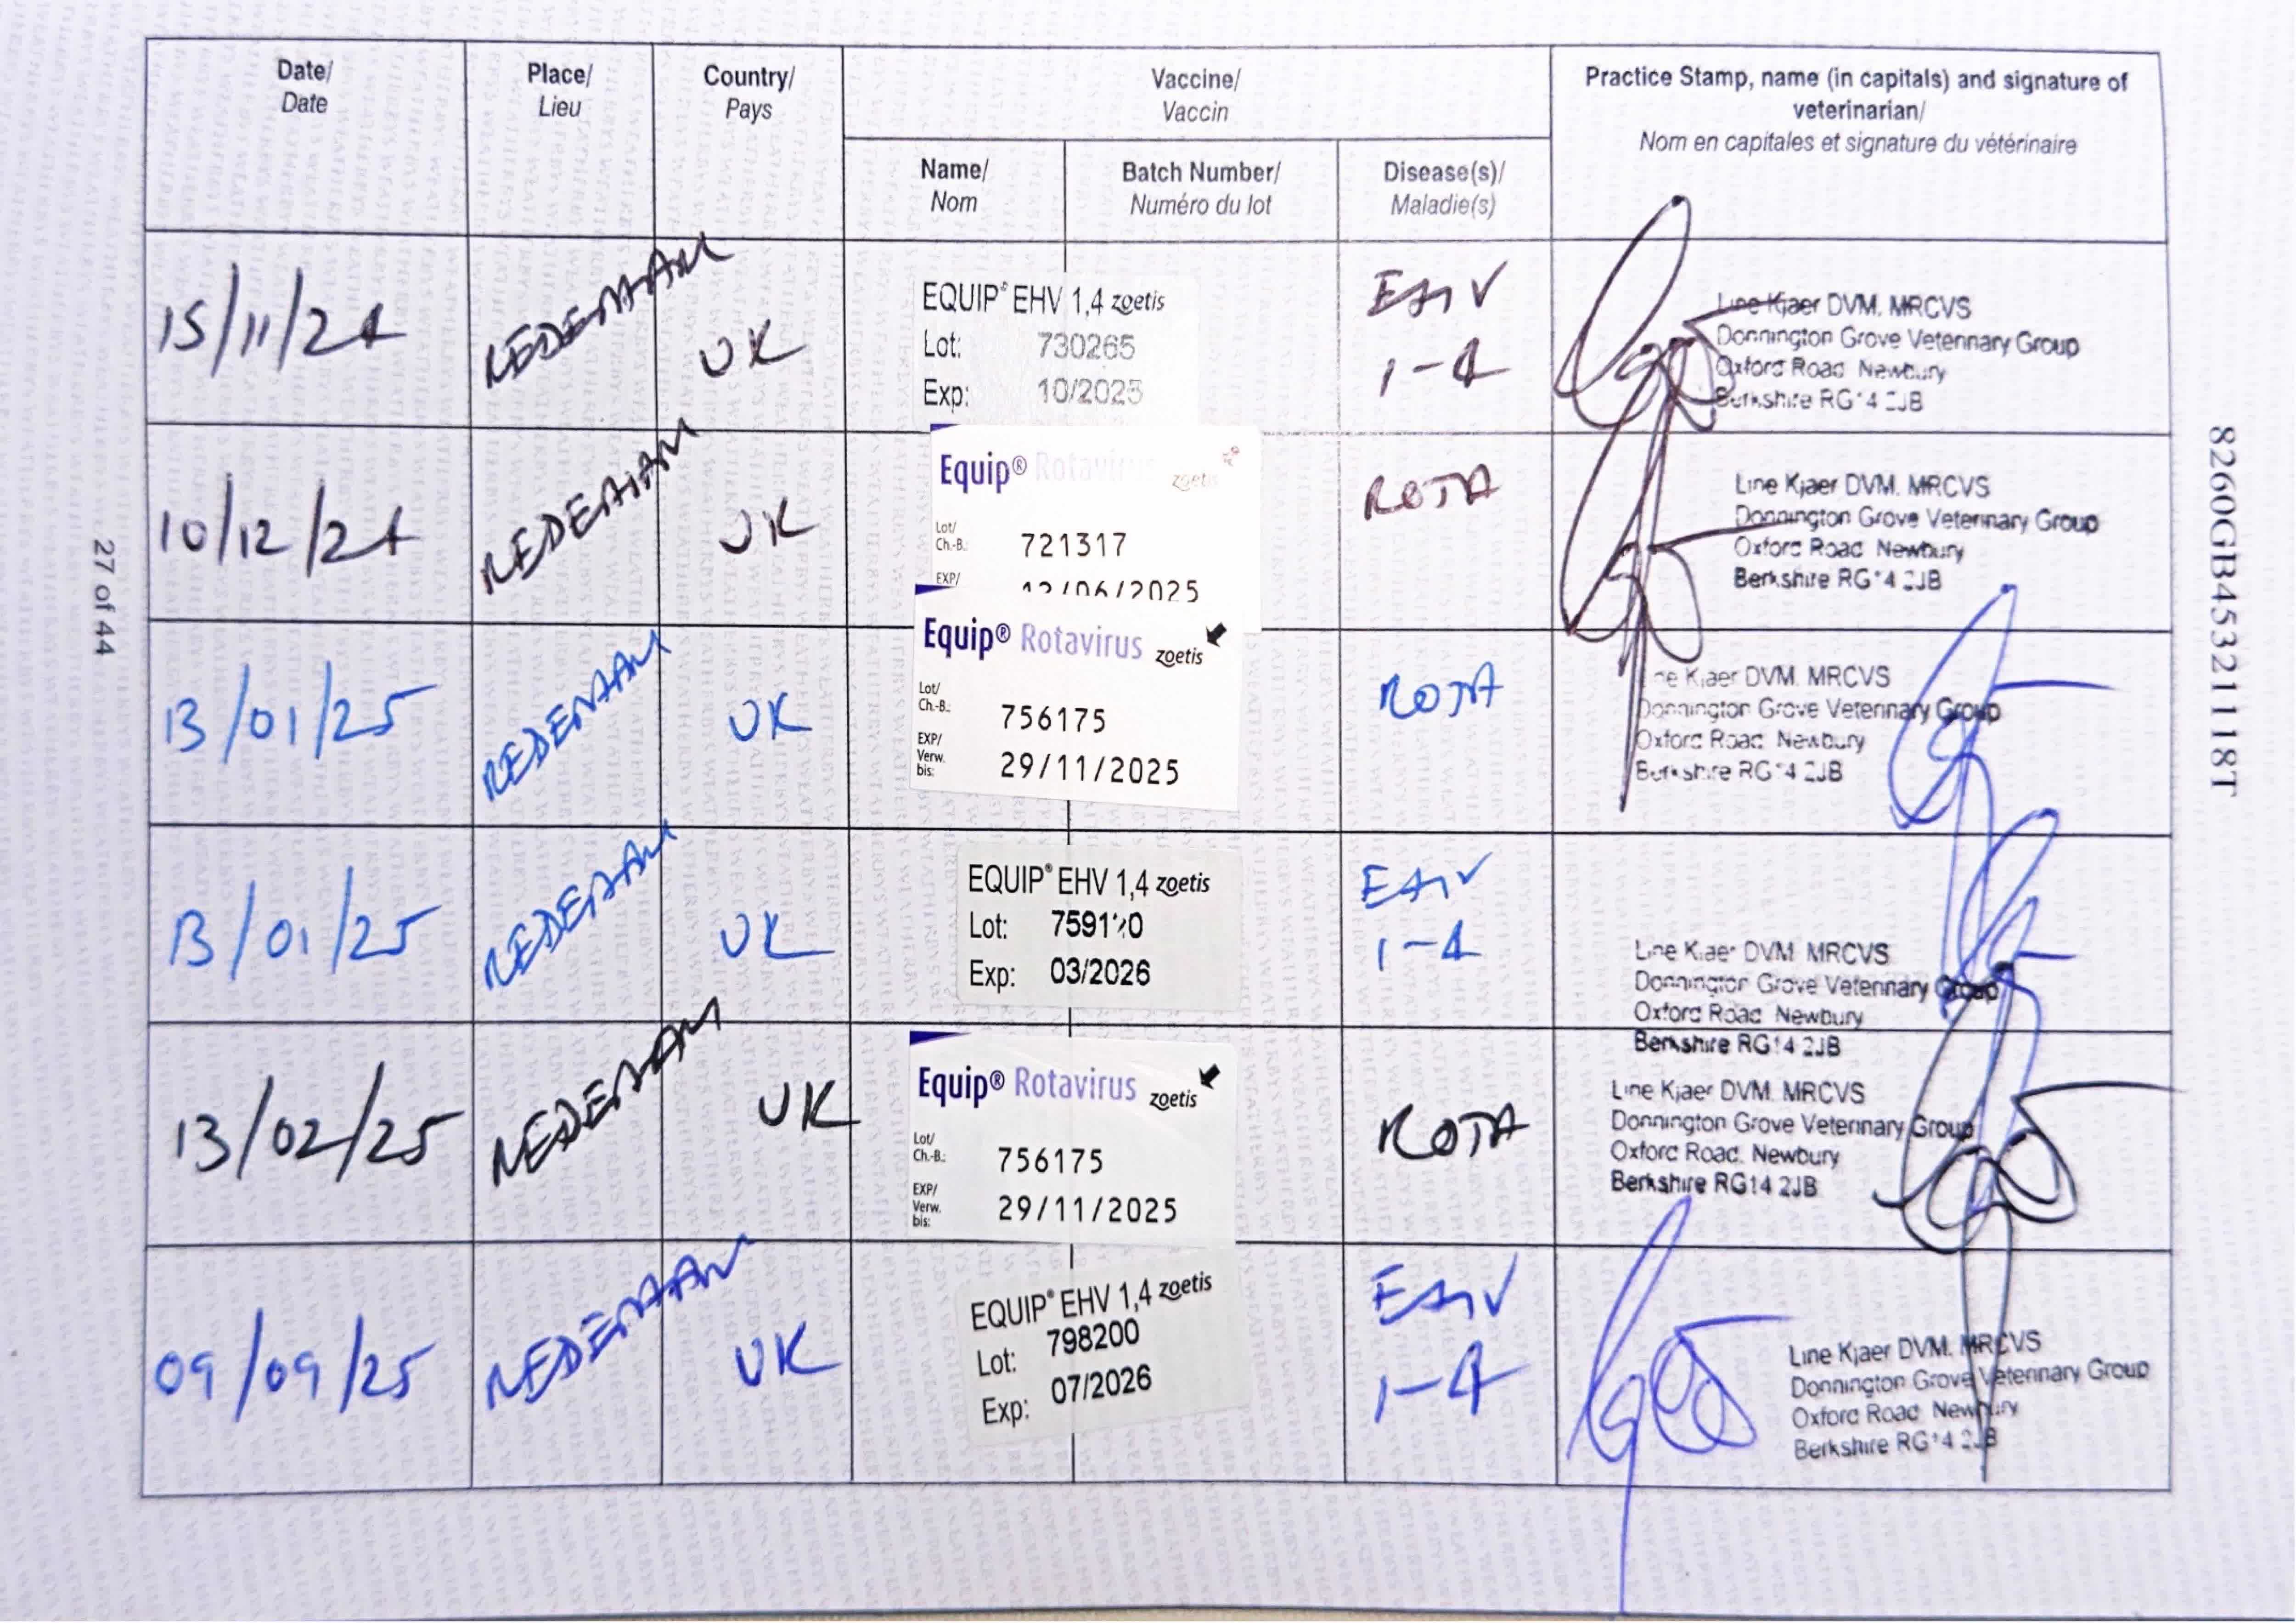 Date/
Date
Place/
Lieu
Country/
Pays
Vaccine/
Vaccin
Practice Stamp, name (in capitals) and signature of
veterinarian/
Nom en capitales et signature du vétérinaire
Name/
Nom
Batch Number/
Numéro du lot
Disease(s)/
Maladie(s)
15/11/24
REDENHAM
UK
EQUIP® EHV 1,4 zoetis
Lot: 730265
Exp: 10/2025
EHV
1-4
Line Kjaer DVM. MRCVS
Donnington Grove Veterinary Group
Oxford Road Newbury
Berkshire RG14 2JB
10/12/24
REDENHAM
UK
Equip® Rotavirus zoetis
Lot/
Ch.-B.: 721317
EXP/ 12/06/2025
ROTA
Line Kjaer DVM. MRCVS
Donnington Grove Veterinary Group
Oxford Road Newbury
Berkshire RG14 2JB
13/01/25
REDENHAM
UK
Equip® Rotavirus zoetis
Lot/
Ch.-B.: 756175
EXP/
Verw.
bis: 29/11/2025
ROTA
Line Kjaer DVM. MRCVS
Donnington Grove Veterinary Group
Oxford Road Newbury
Berkshire RG14 2JB
13/01/25
REDENHAM
UK
EQUIP® EHV 1,4 zoetis
Lot:
Exp: 03/2026
EHV
1-4
Line Kjaer DVM MRCVS
Donnington Grove Veterinary Group
Oxford Road Newbury
Berkshire RG14 2JB
13/02/25
REDENHAM
UK
Equip® Rotavirus zoetis
Lot/
Ch.-B.: 756175
EXP/
Verw.
bis: 29/11/2025
ROTA
Line Kjaer DVM. MRCVS
Donnington Grove Veterinary Group
Oxford Road. Newbury
Berkshire RG14 2JB
09/09/25
REDENHAM
UK
EQUIP® EHV 1,4 zoetis
Lot: 798200
Exp: 07/2026
EHV
1-4
Line Kjaer DVM. MRCVS
Donnington Grove Veterinary Group
Oxford Road Newbury
Berkshire RG14 2JB
27 of 44
8260GB45321118T